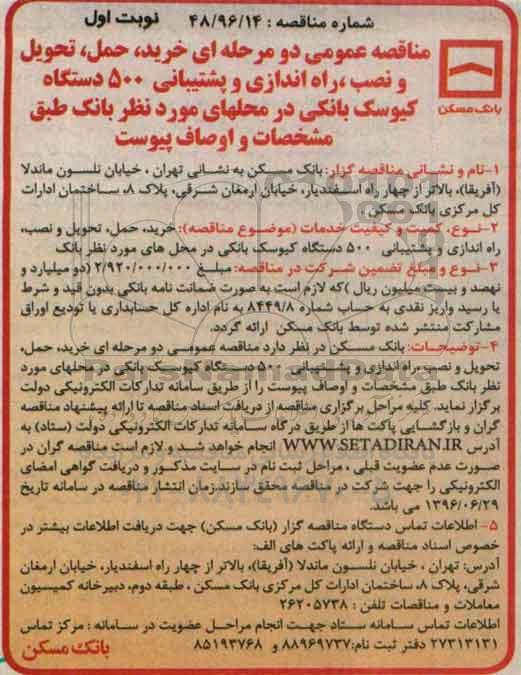 شماره مناقصه : ۴۸/۹۶/۱۴ نوبت اول
مناقصه عمومی دو مرحله ای خرید، حمل، تحویل
و نصب ،راه اندازی و پشتیبانی ۵۰۰ دستگاه
کیوسک بانکی در محلهای مورد نظر بانک طبق
مشخصات و اوصاف پیوست
بانک مسکن
۱-نام و نشانی مناقصه گزار: بانک مسکن به نشانی تهران ، خیابان نلسون ماندلا
(آفریقا)، بالاتر از چهار راه اسفندیار، خیابان ارمغان شرقی، پلاک ۸، ساختمان ادارات
کل مرکزی بانک مسکن .
۲-نوع، کمیت و کیفیت خدمات (موضوع مناقصه): خرید، حمل، تحویل و نصب،
راه اندازی و پشتیبانی ۵۰۰ دستگاه کیوسک بانکی در محل های مورد نظر بانک
۳-نوع و مبلغ تضمین شرکت در مناقصه: مبلغ ۲/۹۲۰/۰۰۰/۰۰۰ (دو میلیارد و
نهصد و بیست میلیون ریال )که لازم است به صورت ضمانت نامه بانکی بدون قید و شرط
یا رسید واریز نقدی به حساب شماره ۸۴۴۹/۸ به نام اداره کل حسابداری یا تودیع اوراق
مشارکت منتشر شده توسط بانک مسکن ارائه گردد.
۴-توضیحات: بانک مسکن در نظر دارد مناقصه عمومی دو مرحله ای خرید، حمل،
تحویل و نصب،راه اندازی و پشتیبانی ۵۰۰ دستگاه کیوسک بانکی در محلهای مورد
نظر بانک طبق مشخصات و اوصاف پیوست را از طریق سامانه تدارکات الکترونیکی دولت
برگزار نماید. کلیه مراحل برگزاری مناقصه از دریافت اسناد مناقصه تا ارائه پیشنهاد مناقصه
گران و بازگشایی پاکت ها از طریق درگاه سامانه تدارکات الکترونیکی دولت (ستاد) به
آدرس WWW.SETADIRAN.IR انجام خواهد شد و لازم است مناقصه گران در
صورت عدم عضویت قبلی ، مراحل ثبت نام در سایت مذکور و دریافت گواهی امضای
الکترونیکی را جهت شرکت در مناقصه محقق سازند.زمان انتشار مناقصه در سامانه تاریخ
۱۳۹۶/۰۶/۲۹ می باشد.
۵- اطلاعات تماس دستگاه مناقصه گزار (بانک مسکن) جهت دریافت اطلاعات بیشتر در
خصوص اسناد مناقصه و ارائه پاکت های الف:
آدرس: تهران ، خیابان نلسون ماندلا (آفریقا)، بالاتر از چهار راه اسفندیار، خیابان ارمغان
شرقی، پلاک ۸، ساختمان ادارات کل مرکزی بانک مسکن ، طبقه دوم، دبیرخانه کمیسیون
معاملات و مناقصات تلفن : ۲۶۲۰۵۷۳۸
اطلاعات تماس سامانه ستاد جهت انجام مراحل عضویت در سامانه : مرکز تماس
۲۷۳۱۳۱۳۱ دفتر ثبت نام:۸۸۹۶۹۷۳۷ و ۸۵۱۹۳۷۶۸
بانک مسکن